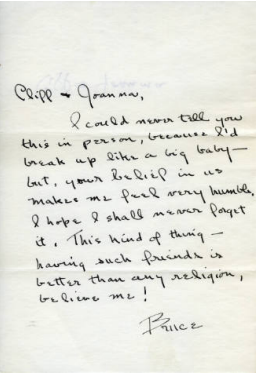 Cliff & Joanna,
I could never tell you
this in person, because I'd
break up like a big baby—
but, your belief in us
makes me feel very humble.
I hope I shall never forget
it. This kind of thing—
having such friends is
better than any religion,
believe me!
Bruce